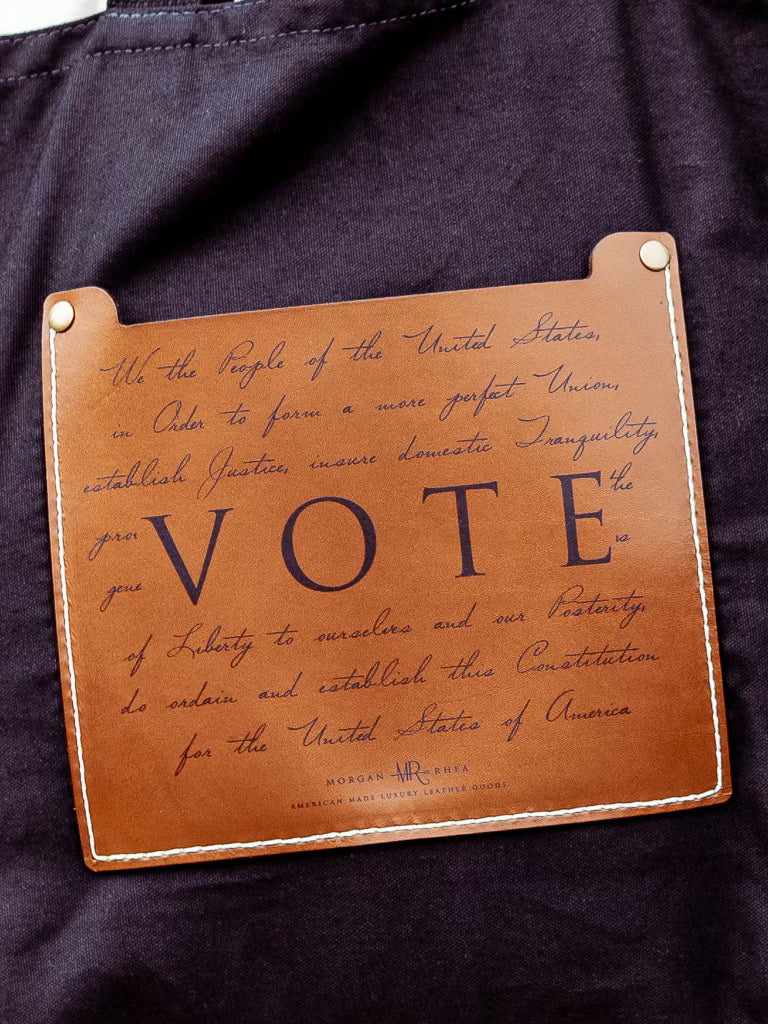 We the People of the United States,
in Order to form a more perfect Union,
establish Justice, insure domestic Tranquility,
the
VOTE
of Liberty to ourselves and our Posterity,
do ordain and establish this Constitution
for the United States of America
MORGAN MR RHEA
AMERICAN MADE LUXURY LEATHER GOODS